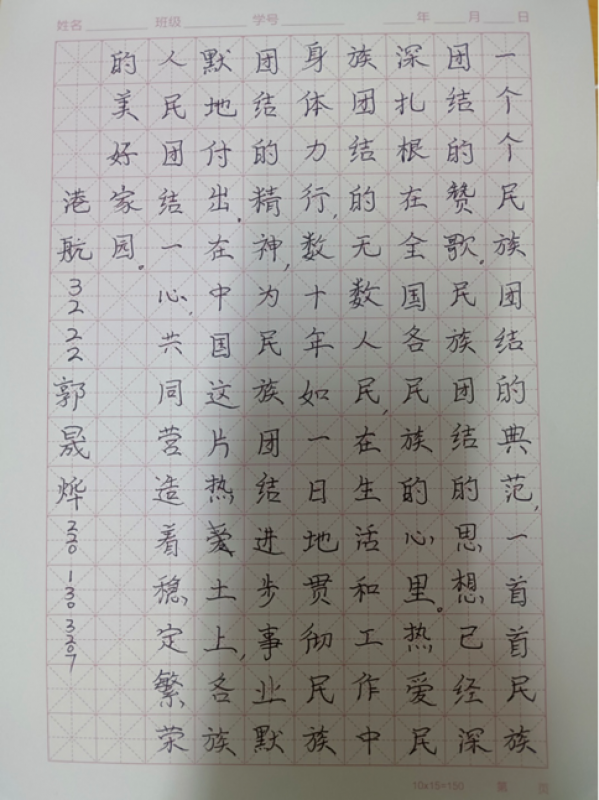 姓名 班级 学号 年 月 日
一个个民族团结的典范,一首首民族
团结的赞歌,民族团结的思想已经深
深扎根在全国各民族的心里。热爱民
族团结的无数人民,在生活和工作中
身体力行,数十年如一日地贯彻民族
团结的精神,为民族团结进步事业默
默地付出,在中国这片热爱土上,各族
人民团结一心,共同营造着稳定繁荣
的美好家园。
港航3222郭晟烨2201303207
10x15=150 第 页